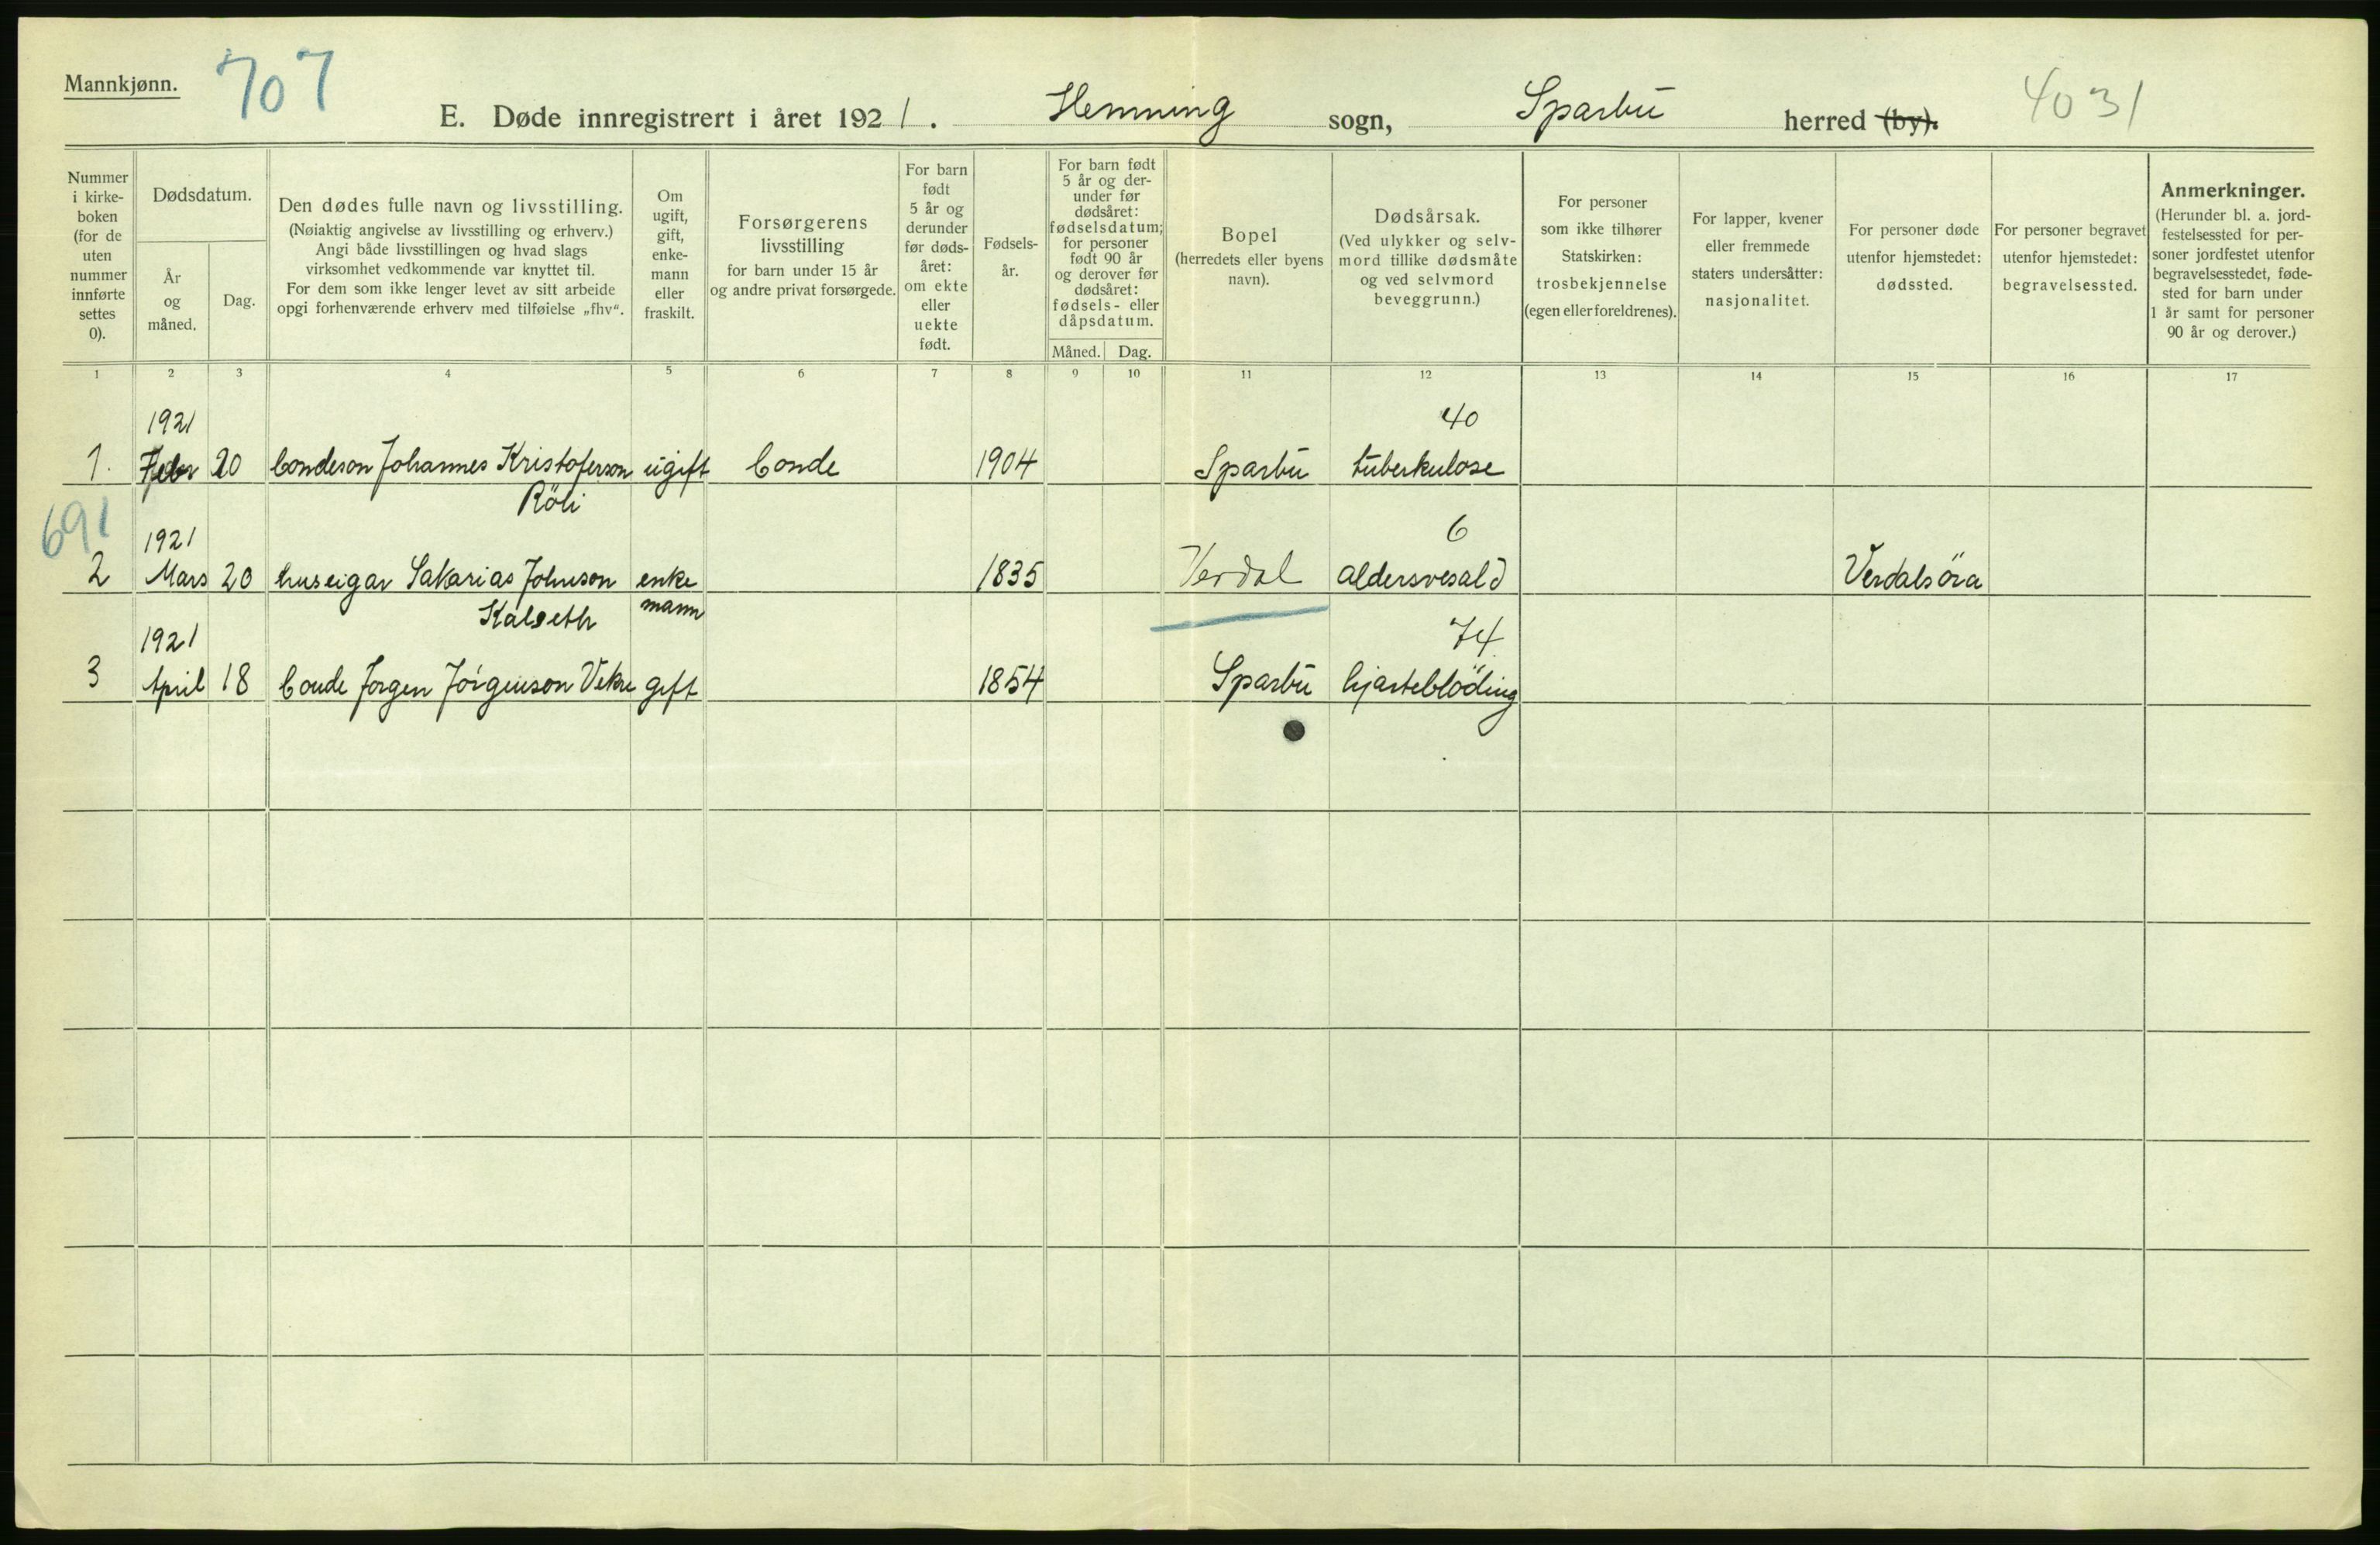 Mannkjønn.
707
E. Døde innregistrert i året 1921. Henning sogn, Sparbu herred (by).
4031
Nummer i kirke-boken (for de uten nummer innførte settes 0).
Dødsdatum.
År og måned.
Dag.
Den dødes fulle navn og livsstilling.
(Nøiaktig angivelse av livsstilling og erhverv.)
Angi både livsstillingen og hvad slags
virksomhet vedkommende var knyttet til.
For dem som ikke lenger levet av sitt arbeide
opgi forhenværende erhverv med tilføielse „fhv“.
Om ugift, gift, enke-mann eller fraskilt.
Forsørgerens
livsstilling
for barn under 15 år
og andre privat forsørgede.
For barn født 5 år og derunder før døds-året: om ekte eller uekte født.
Fødsels-år.
For barn født 5 år og der-under før dødsåret: fødselsdatum; for personer født 90 år og derover før dødsåret: fødsels- eller dåpsdatum.
Måned. Dag.
Bopel
(herredets eller byens
navn).
Dødsårsak.
(Ved ulykker og selv-
mord tillike dødsmåte
og ved selvmord
beveggrunn.)
For personer
som ikke tilhører
Statskirken:
trosbekjennelse
(egen eller foreldrenes).
For lapper, kvener
eller fremmede
staters undersåtter:
nasjonalitet.
For personer døde
utenfor hjemstedet:
dødssted.
For personer begravet
utenfor hjemstedet:
begravelsessted.
Anmerkninger.
(Herunder bl. a. jord-
festelsessted for per-
soner jordfestet utenfor
begravelsesstedet, føde-
sted for barn under
1 år samt for personer
90 år og derover.)
1 2 3 4 5 6 7 8 9 10 11 12 13 14 15 16 17
1921 40
1. Febr 20 bondeson Johannes Kristoferson ugift bonde 1904 Sparbu tuberkulose
Röli
691
1921 6
2 Mars 20 huseigar Sakarias Johnson enke 1835 Verdal aldersvesald Verdalsöra
Kalseth mann
1921 74
3 April 18 bonde Jørgen Jørgenson Vekre gift 1854 Sparbu hjarteblöding